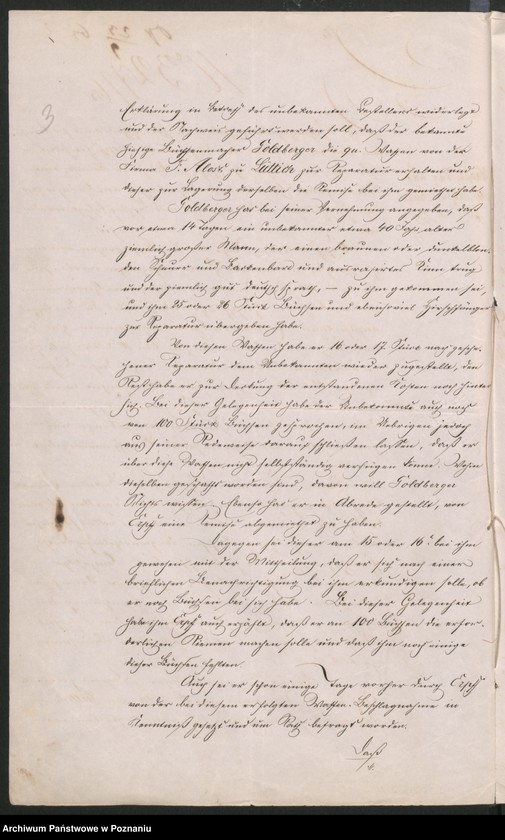 3
Erklärung in Betreff des unbekannten Bestellers widerlege
und der Nachweis geführt werden soll, daß der bekannte
hiesige Büchsenmacher Goldberger die qu. Waffen von der
Firma T. Alost zu Lüttich zur Reparatur erhalten und
dieser zur Lagerung derselben die Remise bei ihm gemiethet habe.
Goldberger hat bei seiner Vernehmung angegeben, daß
vor etwa 14 Tagen ein unbekannter etwa 40 Jahr alter
ziemlich großer Mann, der einen braunen oder dunkelblon-
den Schnurr und Backenbart und ausrasirtes Kinn trug
und der ziemlich gut deutsch sprach, – zu ihm gekommen sei,
und ihm 25 oder 26 Stück Büchsen und ebensoviel Hirschfänger
zur Reparatur übergeben habe.
Von diesen Waffen habe er 16 oder 17 Stück nach gesche-
hener Reparatur dem Unbekannten wieder zugestellt, den
Rest habe er zur Deckung der entstandenen Kosten noch hinter
sich. Bei dieser Gelegenheit habe der Unbekannte auch noch
von 100 Stück Büchsen gesprochen, im Uebrigen jedoch
aus seiner Redeweise darauf schließen lassen, daß er
über diese Waffen nicht selbstständig verfügen könne. Wohin
dieselben geschafft worden sind, davon will Goldberger
Nichts wissen. Ebenso hat er in Abrede gestellt, von
eine Remise abgemiethet zu haben.
Dagegen sei dieser am 15 oder 16 bei ihm
gewesen mit der Mittheilung, daß er sich nach einer
brieflichen Benachrichtigung bei ihm erkundigen solle, ob
er noch Büchsen bei sich habe. Bei dieser Gelegenheit
habe ihm auch erzählt, daß er an 100 Büchsen die erfor-
derlichen Riemen machen solle und daß ihm noch einige
dieser Büchsen fehlten.
Auch sei er schon einige Tage vorher durch
von der bei diesem erfolgten Waffen-Beschlagnahme in
Kenntniß gesetzt und um Rath befragt worden.
Daß
Archiwum Państwowe w Poznaniu